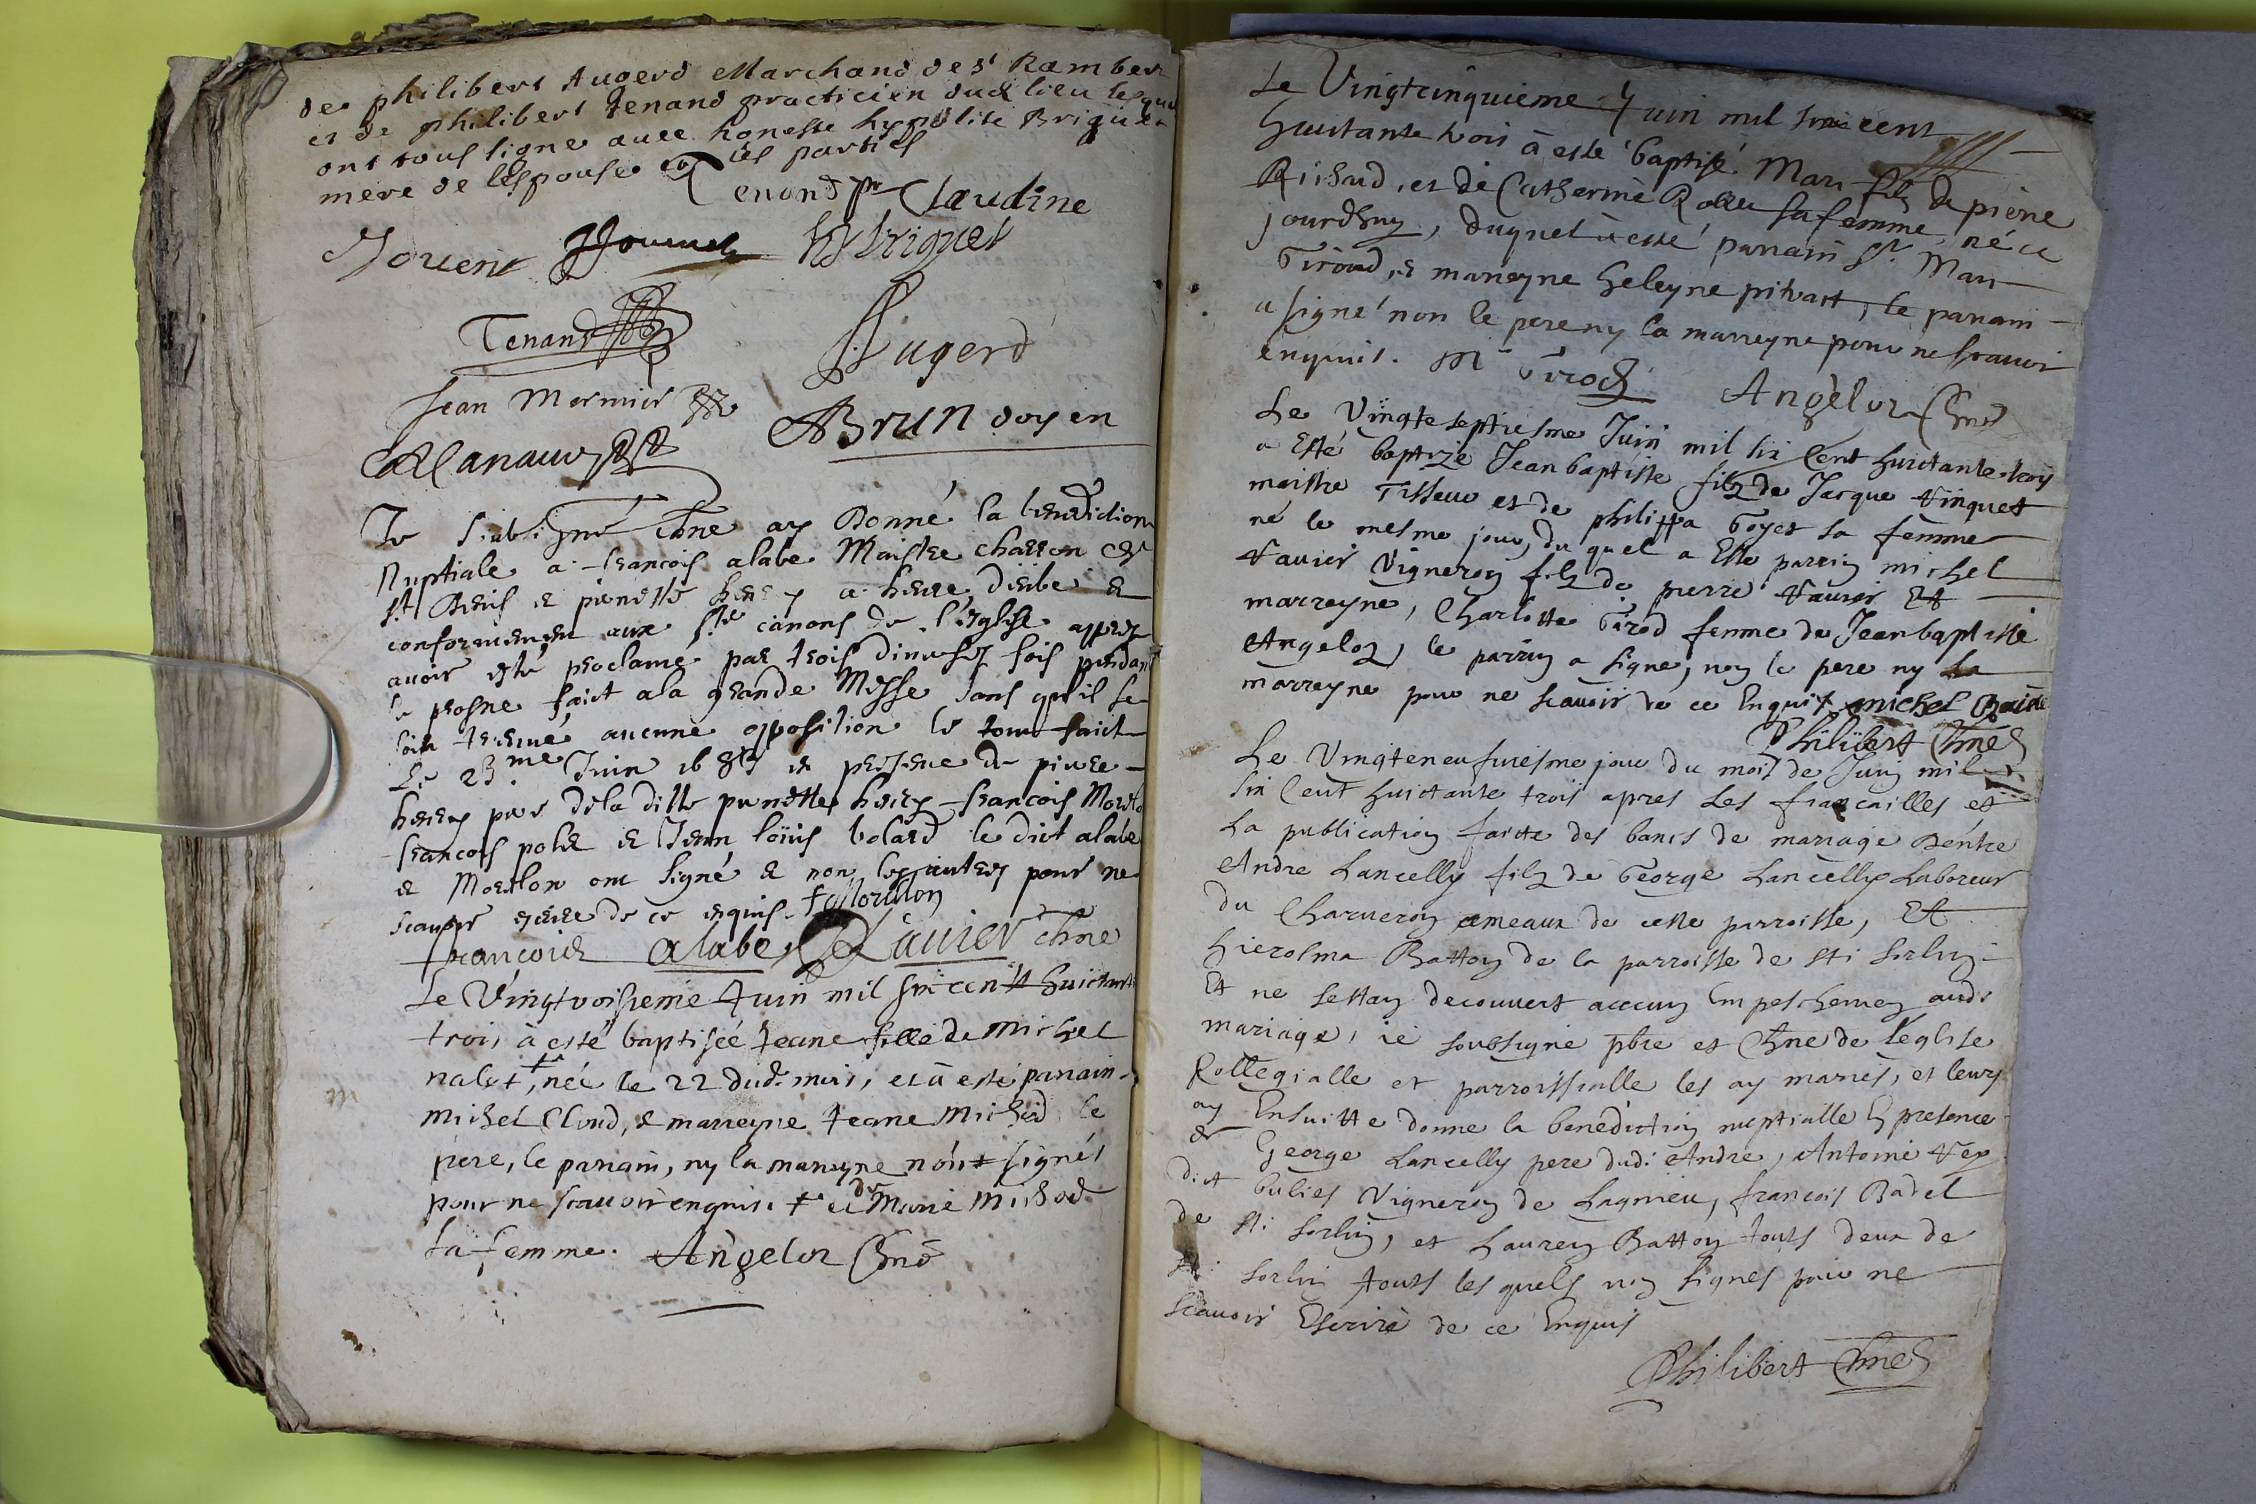 de philibert Augerd Marchand de St Rambert
et de philibert Tenand practicien dud lieu lesquels
ont tous signe avec honeste hypolite Briquet
mere de lespouse et les parties
Tenand pr Claudine
Jouvent hy briquet
Tenand Augerd
Jean Mermier
Brun doyen
Je soubsigné chne ay Donné la benediction
Nuptiale a francois alabe Maistre charron de
St Denis et pierrette henry a
conformement aux Sts canons de l'eglise apprez
avoir esté proclamé par trois diverses fois pendant
le prosne faict a la grande Messe sans qu'il se
soit treuvé aucune opposition le tout faict
Le 23me Juin 1683 en presence de pierre
henry pere de la ditte pierrette henry francois
francois et Jean loüis bolard le dict alabe
et ont signé et non les autres pour ne
scavoir escrire de ce enquis
francois alabe Ravier chne
Le Vingtroisieme Juin mil six cent huictante
trois à esté baptisée Jeane fille de Michel
nalet +, née le 22 dud. mois, et à esté parrain
Michel Cloud, et marreyne Jeane Michod le
pere, le parrain, ny la marreyne n'ont signés
pour ne scavoir enquis. + et de Marie Michod
sa femme. Angelot Chne
Le Vingtcinquieme Juin mil six cent
huictante trois à esté baptisé Marc fils de pierre
Richard, et de Catherine Rolet sa femme, né ce
jourdhuy, duquel à esté parrain Sr. Marc
Girod, et marreyne heleyne pitrat, le parrain
a signé non le pere ny la marreyne pour ne scavoir
enquis. M Girod Angelot Chne
Le Vingte septiesme Juin mil six Cent huictante trois
a Esté baptizé Jean baptiste filz de Jacque Vinquet
maistre Tisseur et de philippa Goyet sa femme
né le mesme jour, du quel a Esté parrin michel
Vavier Vigneron filz de pierre Vavier Et
marreyne, Charlotte Girod femme de Jean baptiste
Angeloz, le parrin a signe, non le pere ny la
marreyne pour ne scavoir de ce Enquis michel
Philibert Chne
Le Vingteneufuiesme jour du mois de Juin mil
Six Cent huictante trois apres les fiancailles et
La publication faicte des bancs de mariage Dentre
Andre Lancelly filz de George Lancelly Laboreur
du Charveron ameaux de cette parroisse, Et
hierosma Batton de la parroisse de St Sorlin
Et ne sestan decouvert auccun Empeschemen audt
mariage, ie soubsigné pbre et Chne de leglise
Collegialle et parroissialle les ay mariés, et leurs
ay Ensuitte donne la benediction nuptialle En presence
de George Lancelly pere dudt Andre, Antoine
dict bulies Vigneron de Lagnieu, francois Badel
de St Sorlin, et Lauren Batton touts deux de
St Sorlin touts les quels non signes pour ne
scavoir Escrire de ce Enquis
Philibert Chne